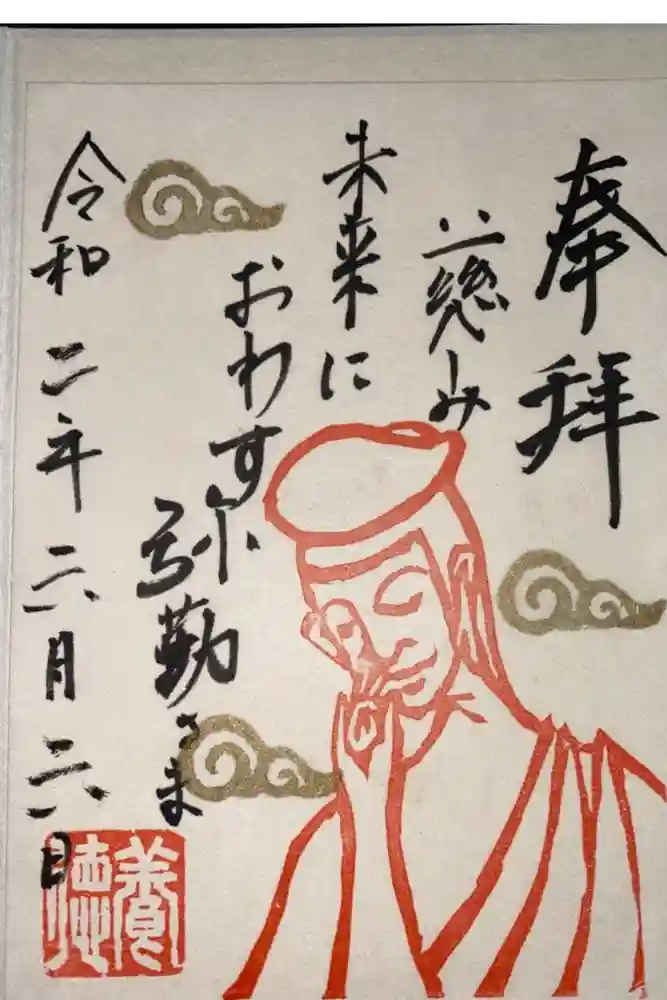 奉拝
慈しみ
未来に
おわす
弥勒さま
令和二年六月六日
養徳